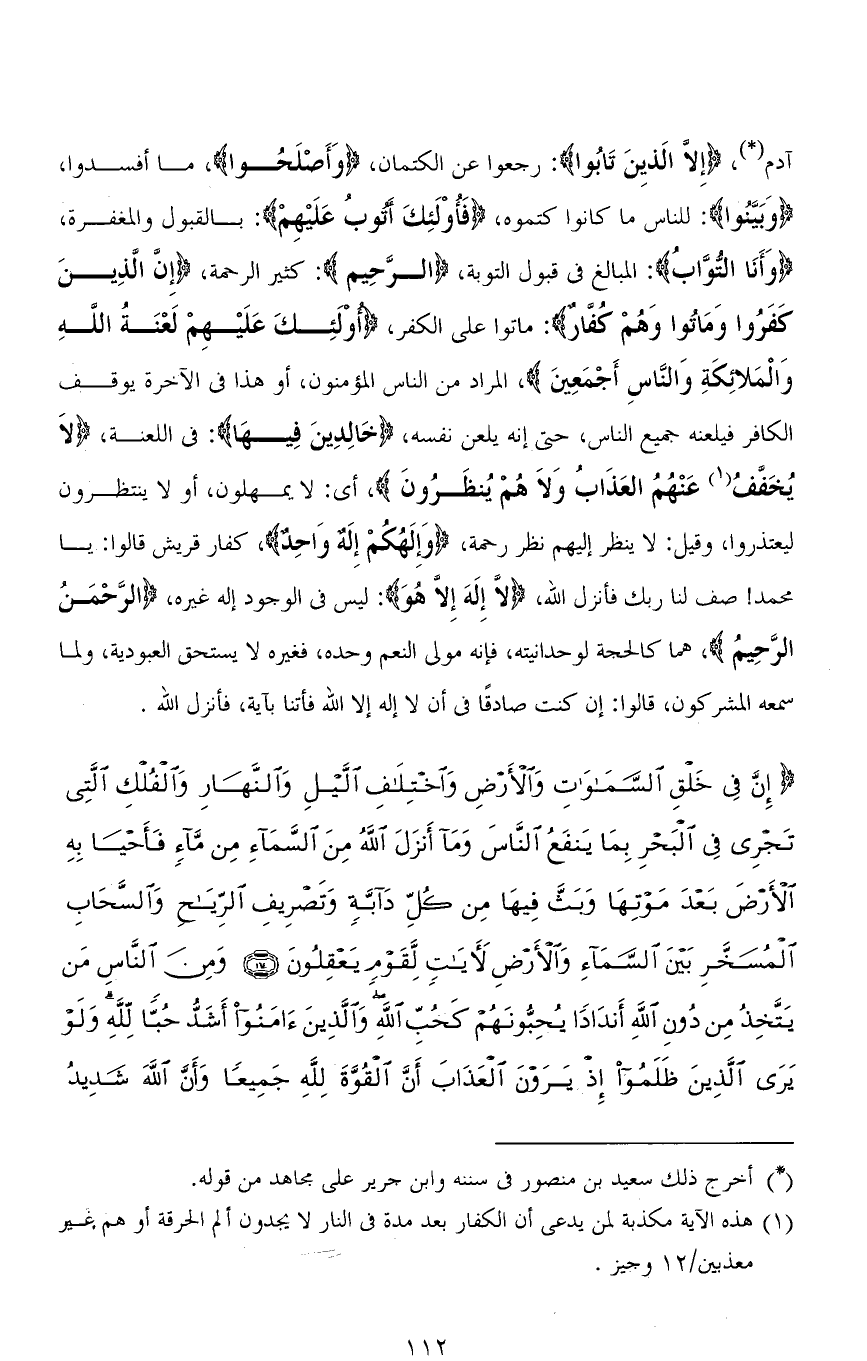 آدم(*)، ﴿إِلاَّ الَّذِينَ تَابُوا﴾: رجعوا عن الكتمان، ﴿وَأَصْلَحُوا﴾، ما أفسدوا،
﴿وَبَيَّنُوا﴾: للناس ما كانوا كتموه، ﴿فَأُوْلَئِكَ أَتُوبُ عَلَيْهِمْ﴾: بالقبول والمغفرة،
﴿وَأَنَا التَّوَّابُ﴾: المبالغ فى قبول التوبة، ﴿الرَّحِيم﴾: كثير الرحمة، ﴿إِنَّ الَّذِينَ
كَفَرُوا وَمَاتُوا وَهُمْ كُفَّارٌ﴾: ماتوا على الكفر، ﴿أُوْلَئِكَ عَلَيْهِمْ لَعْنَةُ اللَّهِ
وَالْمَلائِكَةِ وَالنَّاسِ أَجْمَعِينَ﴾، المراد من الناس المؤمنون، أو هذا فى الآخرة يوقف
الكافر فيلعنه جميع الناس، حتى إنه يلعن نفسه، ﴿خَالِدِينَ فِيهَا﴾: فى اللعنة، ﴿لاَ
يُخَفَّفُ(١) عَنْهُمُ العَذَابُ وَلاَ هُمْ يُنظَرُونَ﴾، أى: لا يمهلون، أو لا ينتظرون
ليعتذروا، وقيل: لا ينظر إليهم نظر رحمة، ﴿وَإِلَهُكُمْ إِلَهٌ وَاحِدٌ﴾، كفار قريش قالوا: يا
محمد! صف لنا ربك فأنزل الله، ﴿لاَّ إِلَهَ إِلاَّ هُوَ﴾: ليس فى الوجود إله غيره، ﴿الرَّحْمَنُ
الرَّحِيمُ﴾، هما كالحجة لوحدانيته، فإنه مولى النعم وحده، فغيره لا يستحق العبودية، ولما
سمعه المشركون، قالوا: إن كنت صادقًا فى أن لا إله إلا الله فأتنا بآية، فأنزل الله .
﴿ إِنَّ فِى خَلْقِ ٱلسَّمَـٰوَٰتِ وَٱلْأَرْضِ وَٱخْتِلَـٰفِ ٱلَّيْلِ وَٱلنَّهَارِ وَٱلْفُلْكِ ٱلَّتِى
تَجْرِى فِى ٱلْبَحْرِ بِمَا يَنفَعُ ٱلنَّاسَ وَمَآ أَنزَلَ ٱللَّهُ مِنَ ٱلسَّمَآءِ مِن مَّآءٍ فَأَحْيَا بِهِ
ٱلْأَرْضَ بَعْدَ مَوْتِهَا وَبَثَّ فِيهَا مِن كُلِّ دَآبَّةٍ وَتَصْرِيفِ ٱلرِّيَـٰحِ وَٱلسَّحَابِ
ٱلْمُسَخَّرِ بَيْنَ ٱلسَّمَآءِ وَٱلْأَرْضِ لَأَيَـٰتٍ لِّقَوْمٍ يَعْقِلُونَ ١٦٤ وَمِنَ ٱلنَّاسِ مَن
يَتَّخِذُ مِن دُونِ ٱللَّهِ أَندَادًا يُحِبُّونَهُمْ كَحُبِّ ٱللَّهِ ۖ وَٱلَّذِينَ ءَامَنُوٓا۟ أَشَدُّ حُبًّا لِّلَّهِ ۗ وَلَوْ
يَرَى ٱلَّذِينَ ظَلَمُوٓا۟ إِذْ يَرَوْنَ ٱلْعَذَابَ أَنَّ ٱلْقُوَّةَ لِلَّهِ جَمِيعًا وَأَنَّ ٱللَّهَ شَدِيدُ
(*) أخرج ذلك سعيد بن منصور فى سننه وابن جرير على مجاهد من قوله.
(١) هذه الآية مكذبة لمن يدعى أن الكفار بعد مدة فى النار لا يجدون ألم الحرقة أو هم غير
معذبين/١٢ وجيز .
١١٢